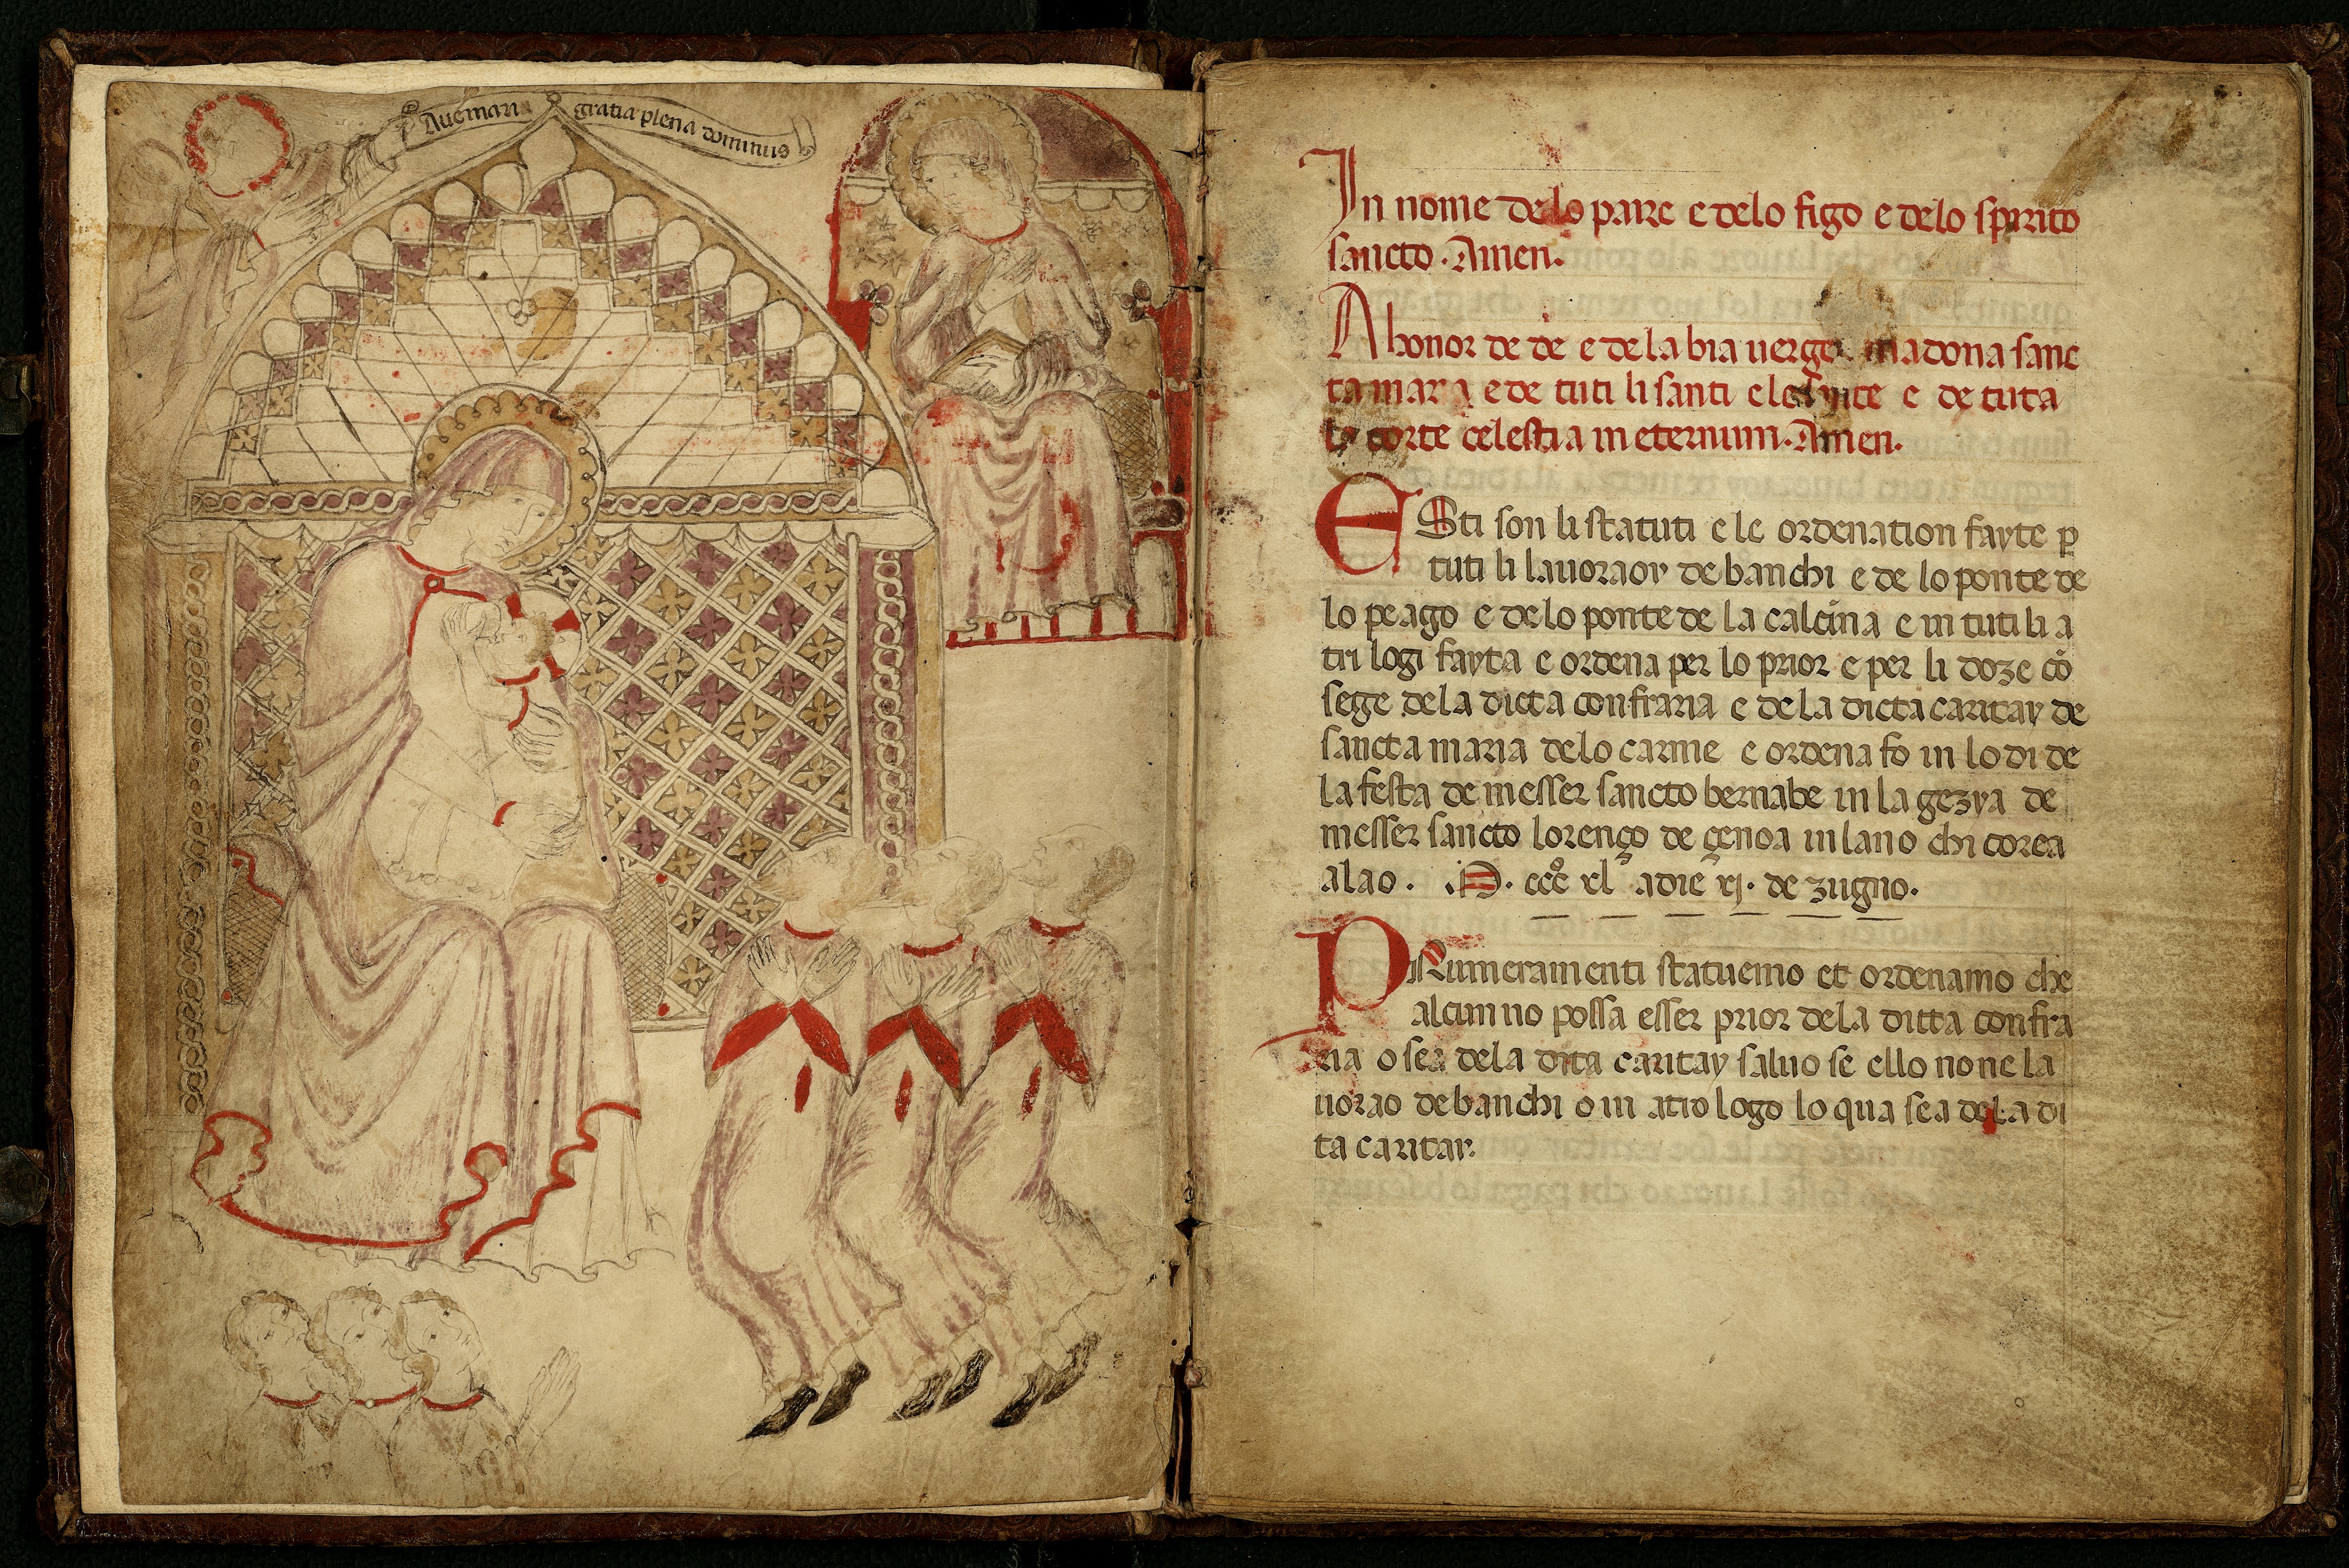 Aue maria gratia plena dominus
In nome de lo paire e delo figo e delo spirito
sancto. Amen.
A honor de de e de la bia uergen madona sanc
ta maria e de tuti li santi e le sante e de tuta
la corte celestia in eternum. Amen.
ESti son li statuti e le ordenation fayte p
tuti li lauoraor de banchi e de lo ponte de
lo peago e de lo ponte de la calcina e in tuti li a
tri logi fayta e ordena per lo prior e per li doze cō
sege de la dicta confraria e de la dicta caritay de
sancta maria de lo carme e ordena fo in lo di de
la festa de messer sancto bernabe in la gezya de
messer sancto lorenço de çenoa in lano chi corea
alao. M. ccco xl adie xj. de zugno.
PRiumeramenti statuemo et ordenamo che
alcun no possa esser prior dela ditta confra
ria o sea dela dita caritay saluo se ello no ne la
uorao de banchi o in atro logo lo qua sea de la di
ta caritay.